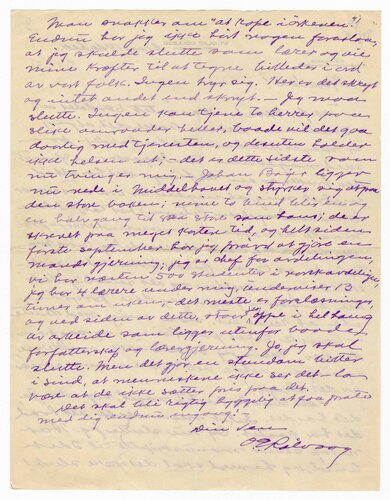 Man snakker om "at rope i ørkenen"!
Endnu har jeg ikke hørt nogen foreslaa,
at jeg skulde slutte som lærer og vie
mine kræfter til at tegne billeder i ord
av vort folk. Ingen bryr sig. Her er det skryt
og intet andet end skryt. — Jeg maa
slutte. Ingen kan tjene to herrer paa
slike omraader heller, baade vil det gaa
daarlig med tjenesten, og desuten holder
ikke helsen ut; — det er dette sidste som
nu tvinger mig. — Johan Bojer ligger
nu nede i Middelhavet og styrker sig paa
den store boken; mine to bind blir en og
en halv gang til saa store som hans; de er
skrevet paa meget kortere tid, og helt siden
første september har jeg prøvd at gjøre en
mands gjerning; jeg er chef for avdelingen,
vi har næsten 500 studenter i norskavdelingen,
jeg har 4 lærere under mig, underviser 13
timer om uken, — det meste er forelæsninger,
og ved siden av dette, oppe i en hel haug
av arbeide som ligger utenfor baade
forfatterskap og lærergjerning. Jo jeg skal
slutte. Men det gjør en stundom bitter
i sind, at menneskene ikke ser det — la
være at de ikke sætter pris paa det.
Det skal bli rigtig hyggelig at faa prate
med dig endnu engang!
Din ven
O E Rølvaag